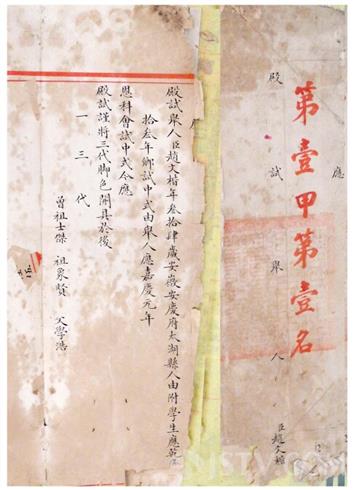 應
殿試舉人
臣趙文楷
第壹甲第壹名
應
殿試舉人臣趙文楷年叁拾肆歲安徽安慶府太湖縣人由附學生應乾隆
拾叁年鄉試中式由舉人應嘉慶元年
恩科會試中式今應
殿試謹將三代脚色開具於後
一三代
曾祖士傑 祖象賢 父學浩